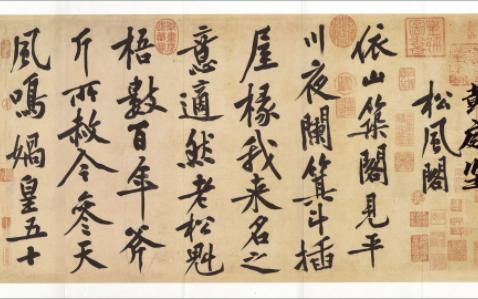 黄庭坚
松風閣
依山築閣見平
川夜闌箕斗插
屋椽我来名之
意適然老松魁
梧數百年斧
斤所赦令參天
風鳴媧皇五十